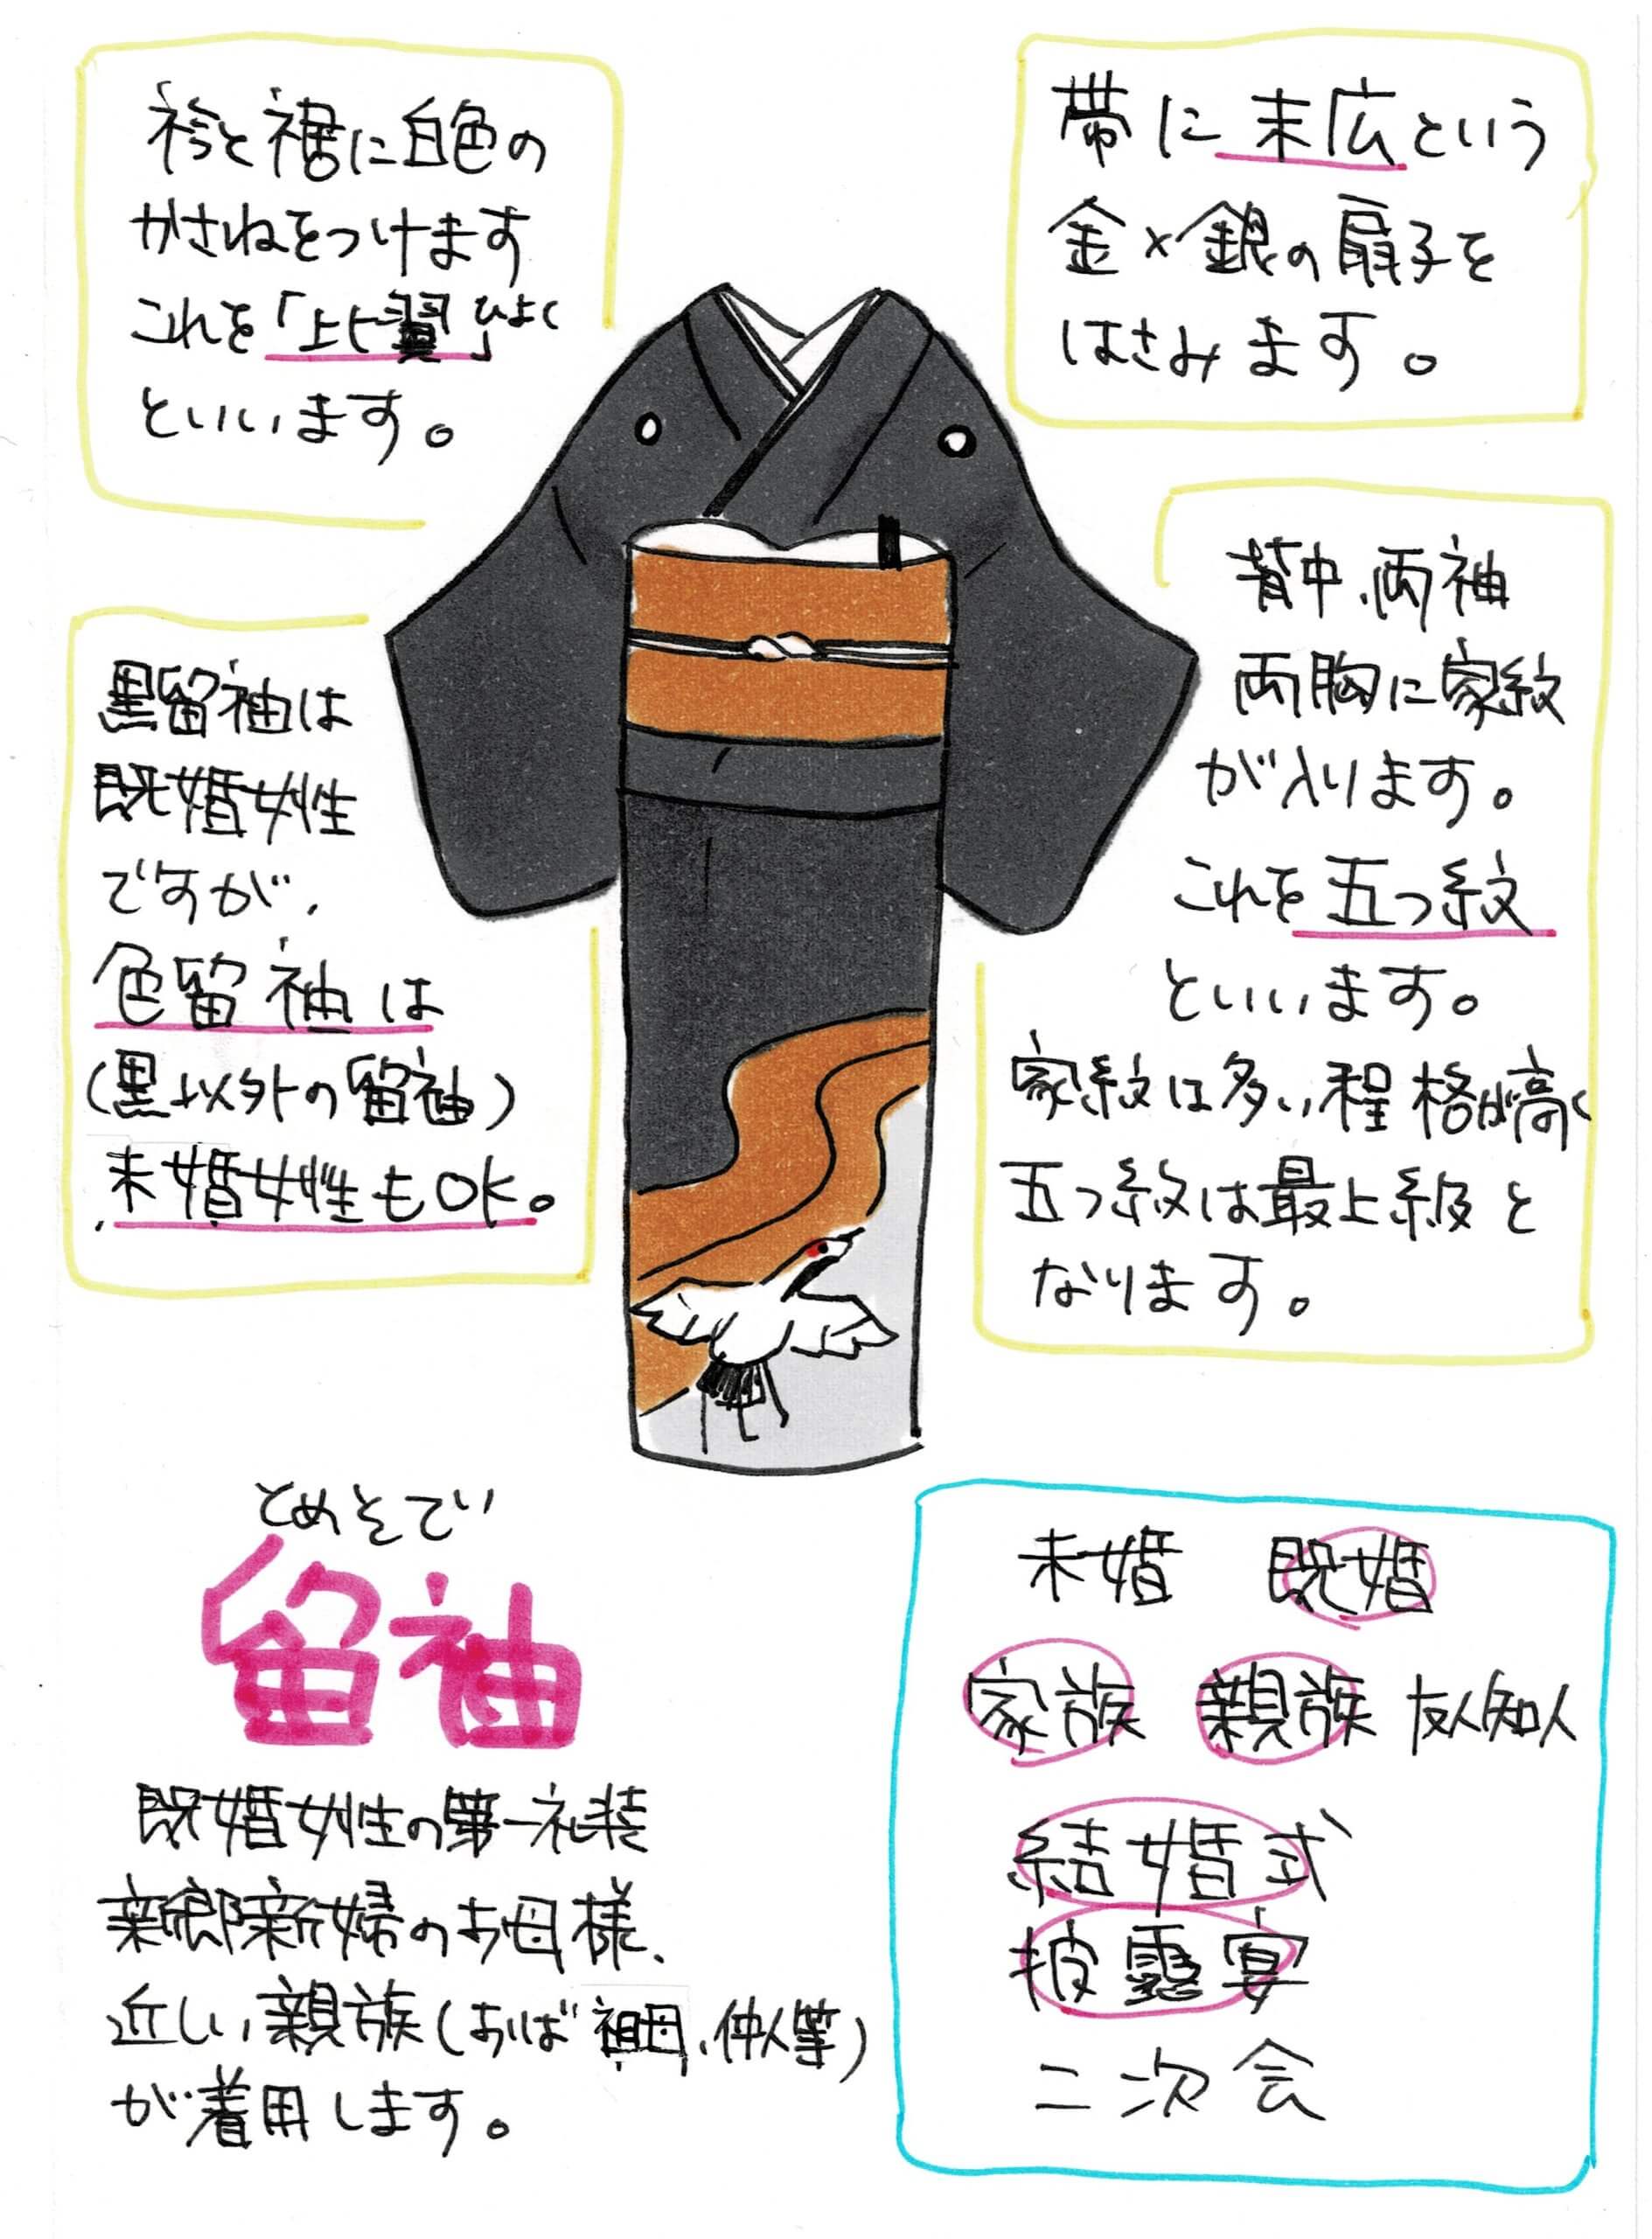 衿と裾に白色の
かさねをつけます
これを「比翼」ひよく
といいます。
帯に末広という
金×銀の扇子を
はさみます。
黒留袖は
既婚女性
ですが、
色留袖は
(黒以外の留袖)
未婚女性もOK。
背中、両袖
両胸に家紋
が入ります。
これを五つ紋
といいます。
家紋は多い程格が高く
五つ紋は最上級と
なります。
とめそでい
留袖
既婚女性の第一礼装
新郎新婦のお母様、
近しい親族(おば 祖母、仲人等)
が着用します。
未婚 既婚
家族 親族 友人知人
結婚式
披露宴
二次会